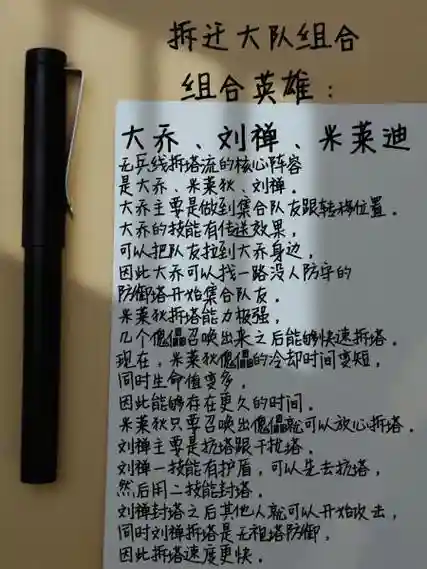 拆迁大队组合
组合英雄：
大乔、刘禅、米莱迪
无兵线拆塔流的核心阵容
是大乔、米莱狄、刘禅。
大乔主要是做到集合队友跟转移位置。
大乔的技能有传送效果，
可以把队友拉到大乔身边，
因此大乔可以找一路没人防守的
防御塔开始集合队友。
米莱狄拆塔能力极强，
几个傀儡召唤出来之后能够快速拆塔。
现在，米莱狄傀儡的冷却时间变短，
同时生命值变多，
因此能够存在更久的时间。
米莱狄只要召唤出傀儡就可以放心拆塔。
刘禅主要是抗塔跟干扰塔。
刘禅一技能有护盾，可以先去抗塔，
然后用二技能封塔。
刘禅封塔之后其他人就可以开始攻击，
同时刘禅拆塔是无视塔防御，
因此拆塔速度更快。